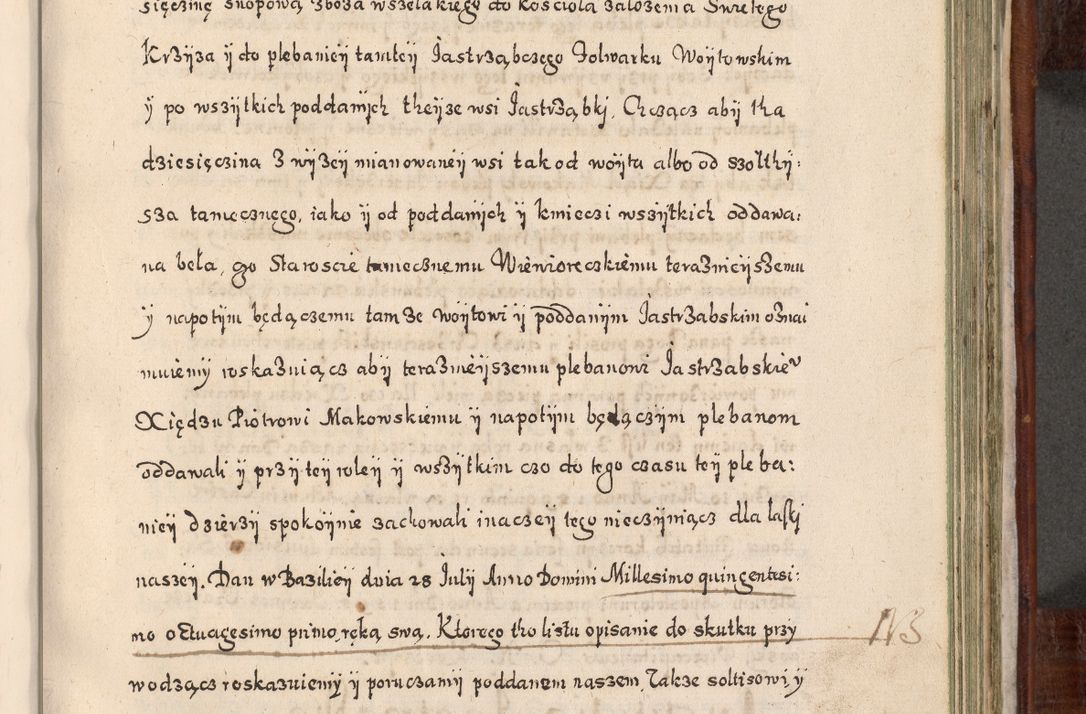 sięczinę snopową zboza wszelakiego do kosciola zalozenia Swietego
Krzyza ÿ do plebanieÿ tamteÿ Jastrząbczego Folwarku Woÿtowskim
ÿ po wszÿtkich poddanÿch theÿze wsi Jastrząbkj. Chcącz abÿ tha
dziesięczina z wÿzeÿ mianowaneÿ wsi tak od woÿta albo od szolthÿ:
sza tamecznego, iako ÿ od poddanÿch ÿ kmieczi wszÿtkich oddawa:
na beła, go Staroscie tamecznemu Wiewioreczkiemu teraznieÿszemu
ÿ napotÿm będączemu tamze woÿtowi ÿ poddanÿm Jastrzabskim oznai
muiemÿ roskazuiącz abÿ teraznieÿszemu plebanowi Jastrzabskie
Xiędzu Piotrowi Makowskiemu ÿ napotÿm będączÿm plebanom
oddawali ÿ przÿ teÿ roleÿ ÿ wszÿtkim czo do tego czasu teÿ pleba:
nieÿ dzierzÿ spokoÿnie zachowali inaczeÿ tego nieczÿniącz dla łaskj
naszeÿ. Dan w Bazilieÿ dnia 28 Julij Anno Domini Millesimo quingentesi:
mo octuagesimo primo, ręką swą. Ktorego tho listu opisanie do skutku przy N3
wodzącz roskazuiemÿ ÿ poruczamÿ poddanem naszem, Takze soltisowi, ÿ